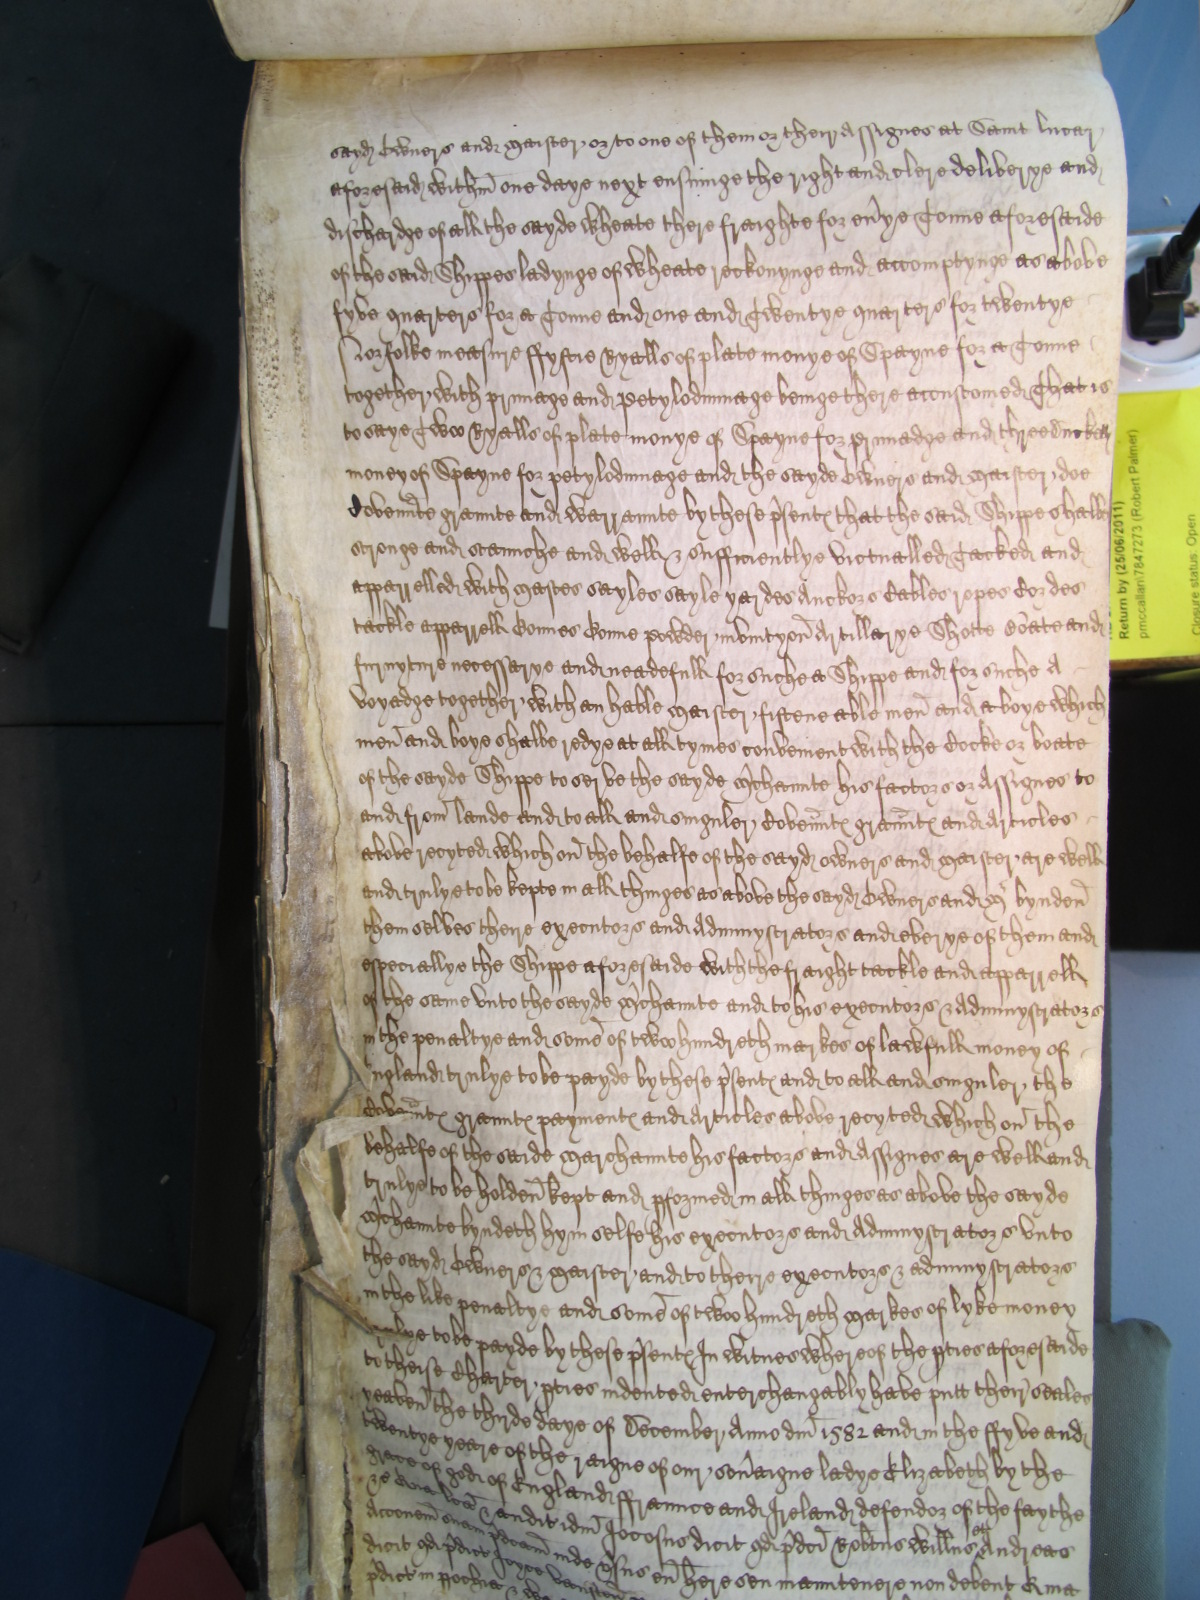 sayd Owners and Maister or to one of them or their Assignes at Saint Lucar
aforesaid within one daye next ensuinge the right and clere deliverye and
dischardge of all the sayde wheate there fraighte for ev'ye Tonne aforesaide
of the said Shippes ladynge of wheate reckonynge and accomptynge as above
fyve quarters for a Tonne and one and Twentye quarters for twentye
Norfolke measure ffyftie Ryalls of plate monye of Spayne for a Tonne
together with primage and Petylodmanage beinge there accustomed That is
to saye Twoo Ryalls of plate monye of Spayne for primadge and three
money of Spayne for petylodmanage and the sayde Owners and Maister doe
Covennte graunte and warraunte by these p'sent that the said Shippe shalbe
stronge and staunche and well & sufficientlye victualled Tacked and
apparrelled with Mastes sayles sayle yardes Anckors Cables ropes Cordes
tackle apparrell Gonnes Gonne powder munityon Artillarye Shotte Boate and
furnyture necessarye and neadefull for suche a Shippe and for suche A
voyadge together with an hable Maister fiftene able men and a boye which
men and boye shalbe redye at all tymes convenient with the Cocke or boate
of the sayde Shippe to serve the sayde M'chaunte his factors or Assignes to
and from lande and to all and singuler Covennt graunt and Articles
above recyted which on the behalfe of the sayd owners and Maister are well
and trulye to be kepte in all thinges as above the sayd Owners and M' bynden
themselves there executors and Admynystrators and everye of them and
especiallye the Shippe aforesaide with the fraight tackle and apparrell
of the same unto the sayde M'chaunte and to his executors & Admynystrators
in the penaltye and some of twoo hundreth markes of lawfull money of
England trulye to be payde by these p'sent and to all and singuler the
Covennt graunt payment and Articles above recyted which on the
behalfe of the saide Marchaunte his factors and Assignes are well and
trulye to be holden kept and p'formed in all thinges as above the sayde
M'chaunte byndeth hym selfe his executors and Admynystrators unto
the sayd Owners & Maister and to theire executors & admynystrators
in the like penaltye and some of twoo hundreth Markes of lyke money
trulye to be payde by these p'sent In witnes whereof the p'ties aforesaide
to theise Charter p'ties indented enterchangably have putt their seales
yeaven the thirde daye of December Anno dm 1582 and in the ffyve and
twentye yeare of the raigne of our sov'aigne ladye Elizabeth by the
grace of god of England ffraunce and Ireland defendor of the faythe
&c Quibus lect & audit idm Jocosus dicit qd p'dci Rob'tus Will'us et Andreas
Acconem suam p'dcam inde v'sus eu here seu manutenere non debent
dicit qd p'dict
p'dict in p'ochia
Return by (25/06/2011)
pmccallan\7847273 (Robert Palmer)
Closure status: Open